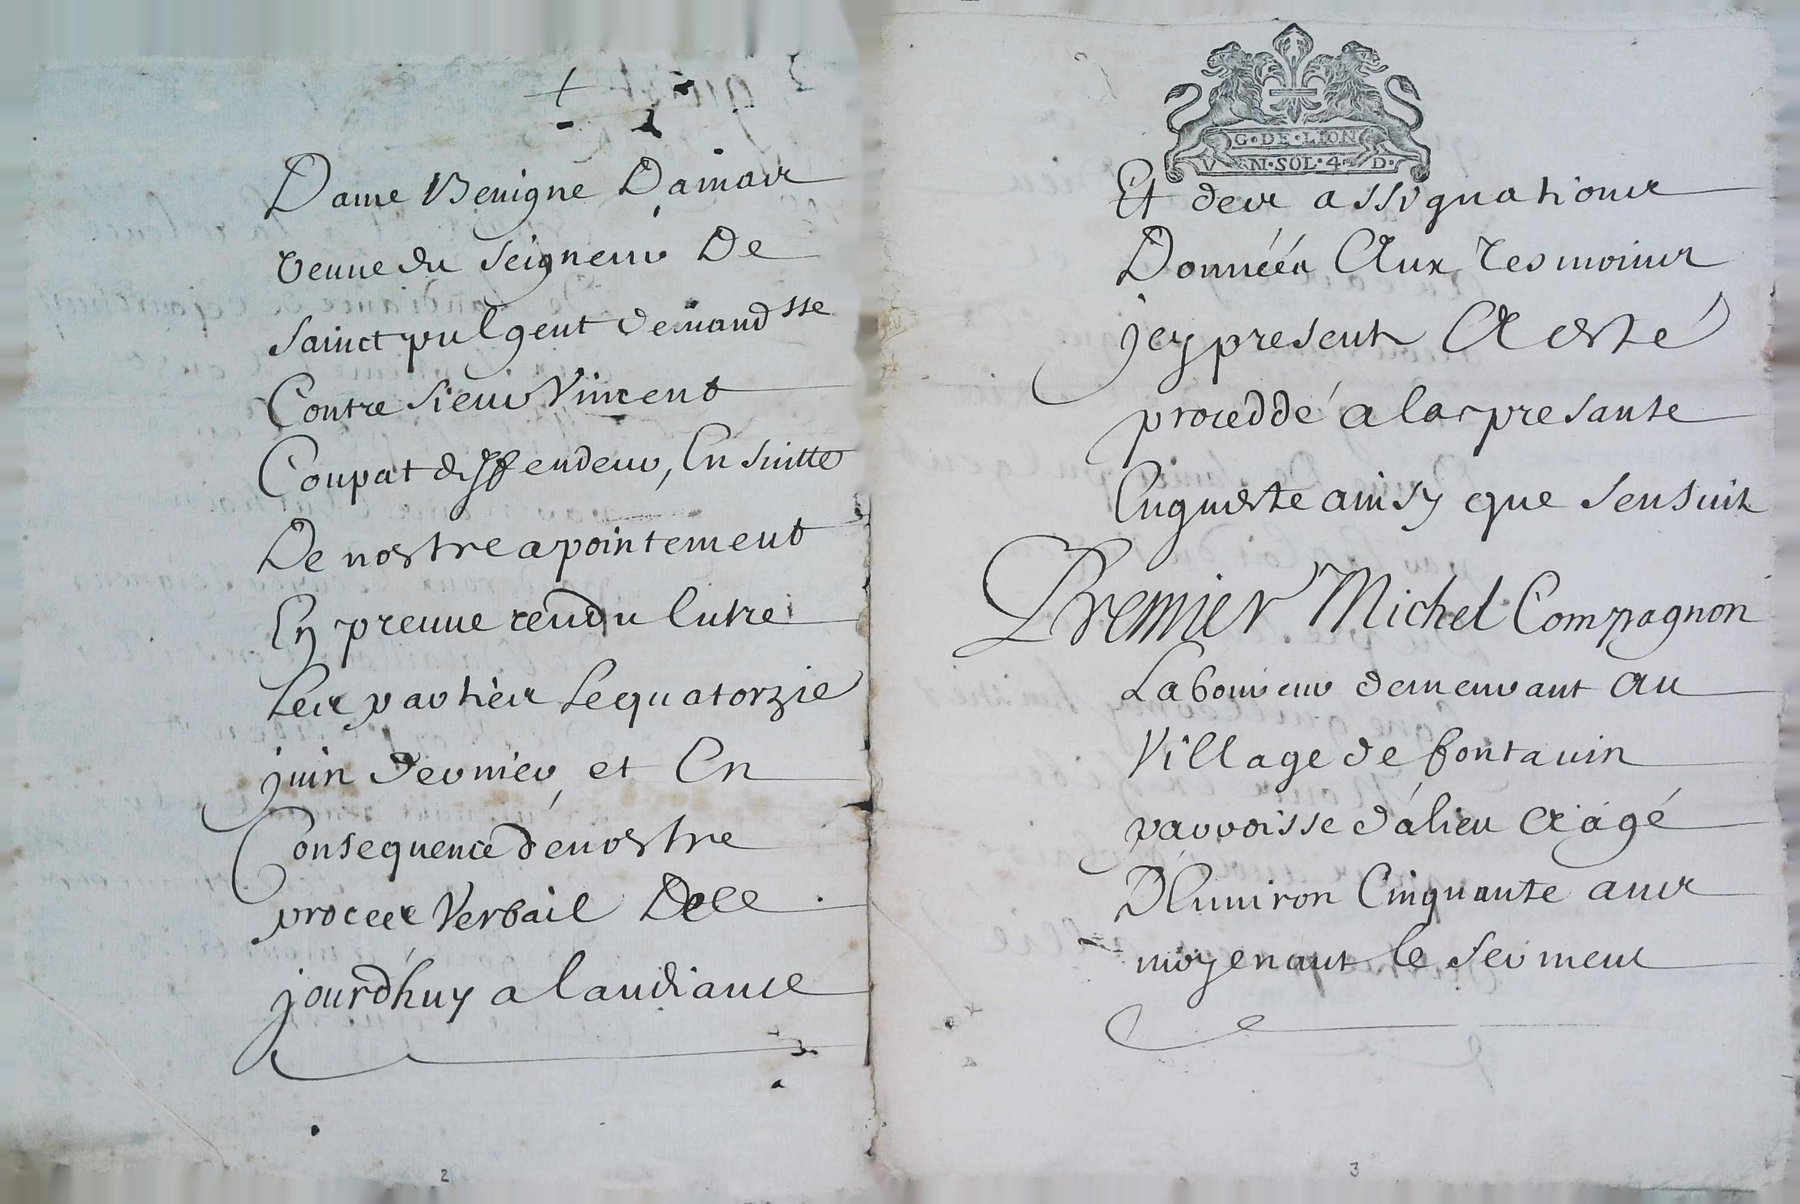 Dame Benigne Damas
veuue du seigneur De
sainct pulgent demandsse
Contre sieur Vincent
Coupat deffendeur, En suitte
De nostre apointement
En preuue rendu Entre
les parties Le quatorzie
juin dernier, et En
Consequence de nostre
proces Verbail De ce
jourdhuy a laudiance
2
G·DE·LION
VN·SOL·4·D·
Et des assignations
Données Aux Tesmoins
jcy presents A esté
proceddé a la presante
Enqueste ainsy que sensuit
Premier Michel Compagnon
Laboureur demeurant au
Village de fontauin
parroisse dalieu Aagé
DEnuiron Cinquante ans
moyenant le serment
3